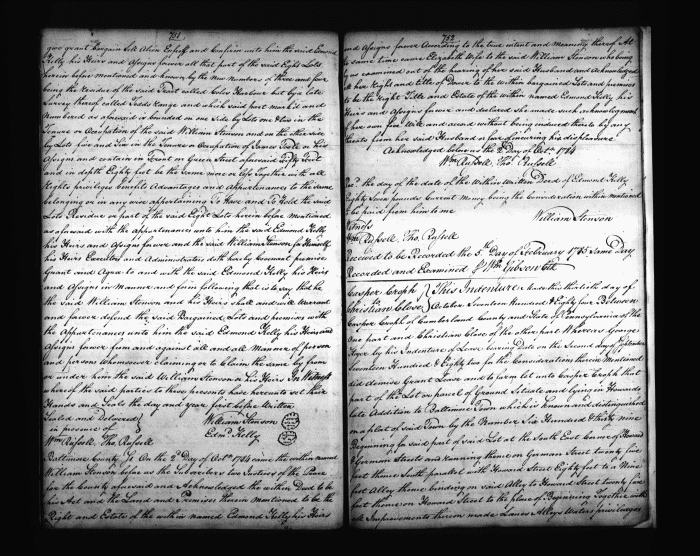 781
give grant bargain Sell Alien Enfeoff and Confirm unto him the said Edmond
Kelly his Heirs and Assigns forever all that part of the said Eight Lots
herein before mentioned and known by the New Numbers of three and four
being the Residue of the said Tract called Coles Harbour but by a late
Survey thereof called Todds Range and which said part mark'd and
Numbered as aforesaid is bounded on one Side by Lots one & two in the
Tenure or Occupation of the said William Stenson and on the other side
by Lots five and Six in the Tenure or Occupation of James Toole or His
Assigns and contain in Front on Green Street aforesaid Fifty Feet
and in depth Eighty feet be the same more or less Together with all
Rights priviledges benefits Advantages and Appurtenances to the same
belonging or in any wise appertaining To Have and To Hold the said
Lots Residue or part of the said Eight Lots herein before mentioned
as aforesaid with the appurtenances unto him the said Edmond Kelly
his Heirs and Assigns forever and the said William Stenson for Himself
his Heirs Executors and Administrators doth hereby Covenant promise
Grant and Agree to and with the said Edmond Kelly his Heirs
and Assigns in Manner and form following that is to say that he
the said William Stenson and his Heirs shall and will Warrant
and forever defend the said Bargained Lots and premises with
the Appurtenances unto him the said Edmond Kelly his Heirs and
Assigns forever from and against all and all Manner of person
and persons whomsoever claiming or to Claim the same by from
or under him the said William Stenson or his Heirs In Witness
whereof the said parties to these presents have hereunto set their
Hands and Seals the day and year first before Written
Sealed and Delivered
in presence of
William Stenson
Wm Russell, Tho Russell
Edmd Kelly
Baltimore County Sc. On the 2d day of Octr 1784 came the within named
William Stenson before us the Subscribers two Justices of the Peace
for the County aforesaid and Acknowledged the within Deed to be
his Act and the Land and Premises therein Mentioned to be the
Right and Estate of the within named Edmond Kelly his Heirs
782
and Assigns forever According to the true intent and Meaning thereof At
the same time came Elizabeth Wife to the said William Stenson who being
by us examined out of the hearing of her said Husband and Acknowledged
all her Right and Title Dower to the within bargained Lots and premises
to be the Right Title and Estate of the within named Edmond Kelly his
Heirs and Assigns forever and declared she made such acknowledgment
of her own free Will and accord without being induced thereto by any
threats from her said Husband or fear of incurring his displeasure
Acknowledged before us the 2d day of Octr 1784
Wm Russell, Tho Russell
Recd the day of the date of the within written Deed of Edmond Kelly
Eighty Seven pounds Current Money being the Consideration within mentioned
to be paid from him to me
William Stenson
Witness
Wm Russell, Tho Russell
Received to be Recorded the 5th Day of February 1785 Same Day
Recorded and Examined Wm Gibson Clk
Casper Croph
to
Christian Close
This Indenture Made this thirtieth day of
October Seventeen Hundred & Eighty four Between
Casper Croph of Cumberland County and State of Pennsylvania of the
One part and Christian Close of the other part Whereas George
by his Indenture of Lease bearing Date on the Second day of September
Seventeen Hundred & Eighty two for the Considerations therein Mentioned
did demise Grant Lease and to farm let unto Casper Croph that
part of the Lot or parcel of Ground Situate and lying in Howards
late Addition to Baltimore Town which is known and distinguished
on a plat of said Town by the Number Six Hundred & thirty nine
Beginning for said part of said Lot at the South East Corner of Howard
& German Streets and running thence on German Street twenty five
feet thence South parallel with Howard Street Eighty feet to a Nine
foot Alley thence binding on said Alley to Howard Street twenty five
feet thence on Howard Street to the place of Beginning Together with
all Improvements thereon made Lanes Alleys Waters priviledges